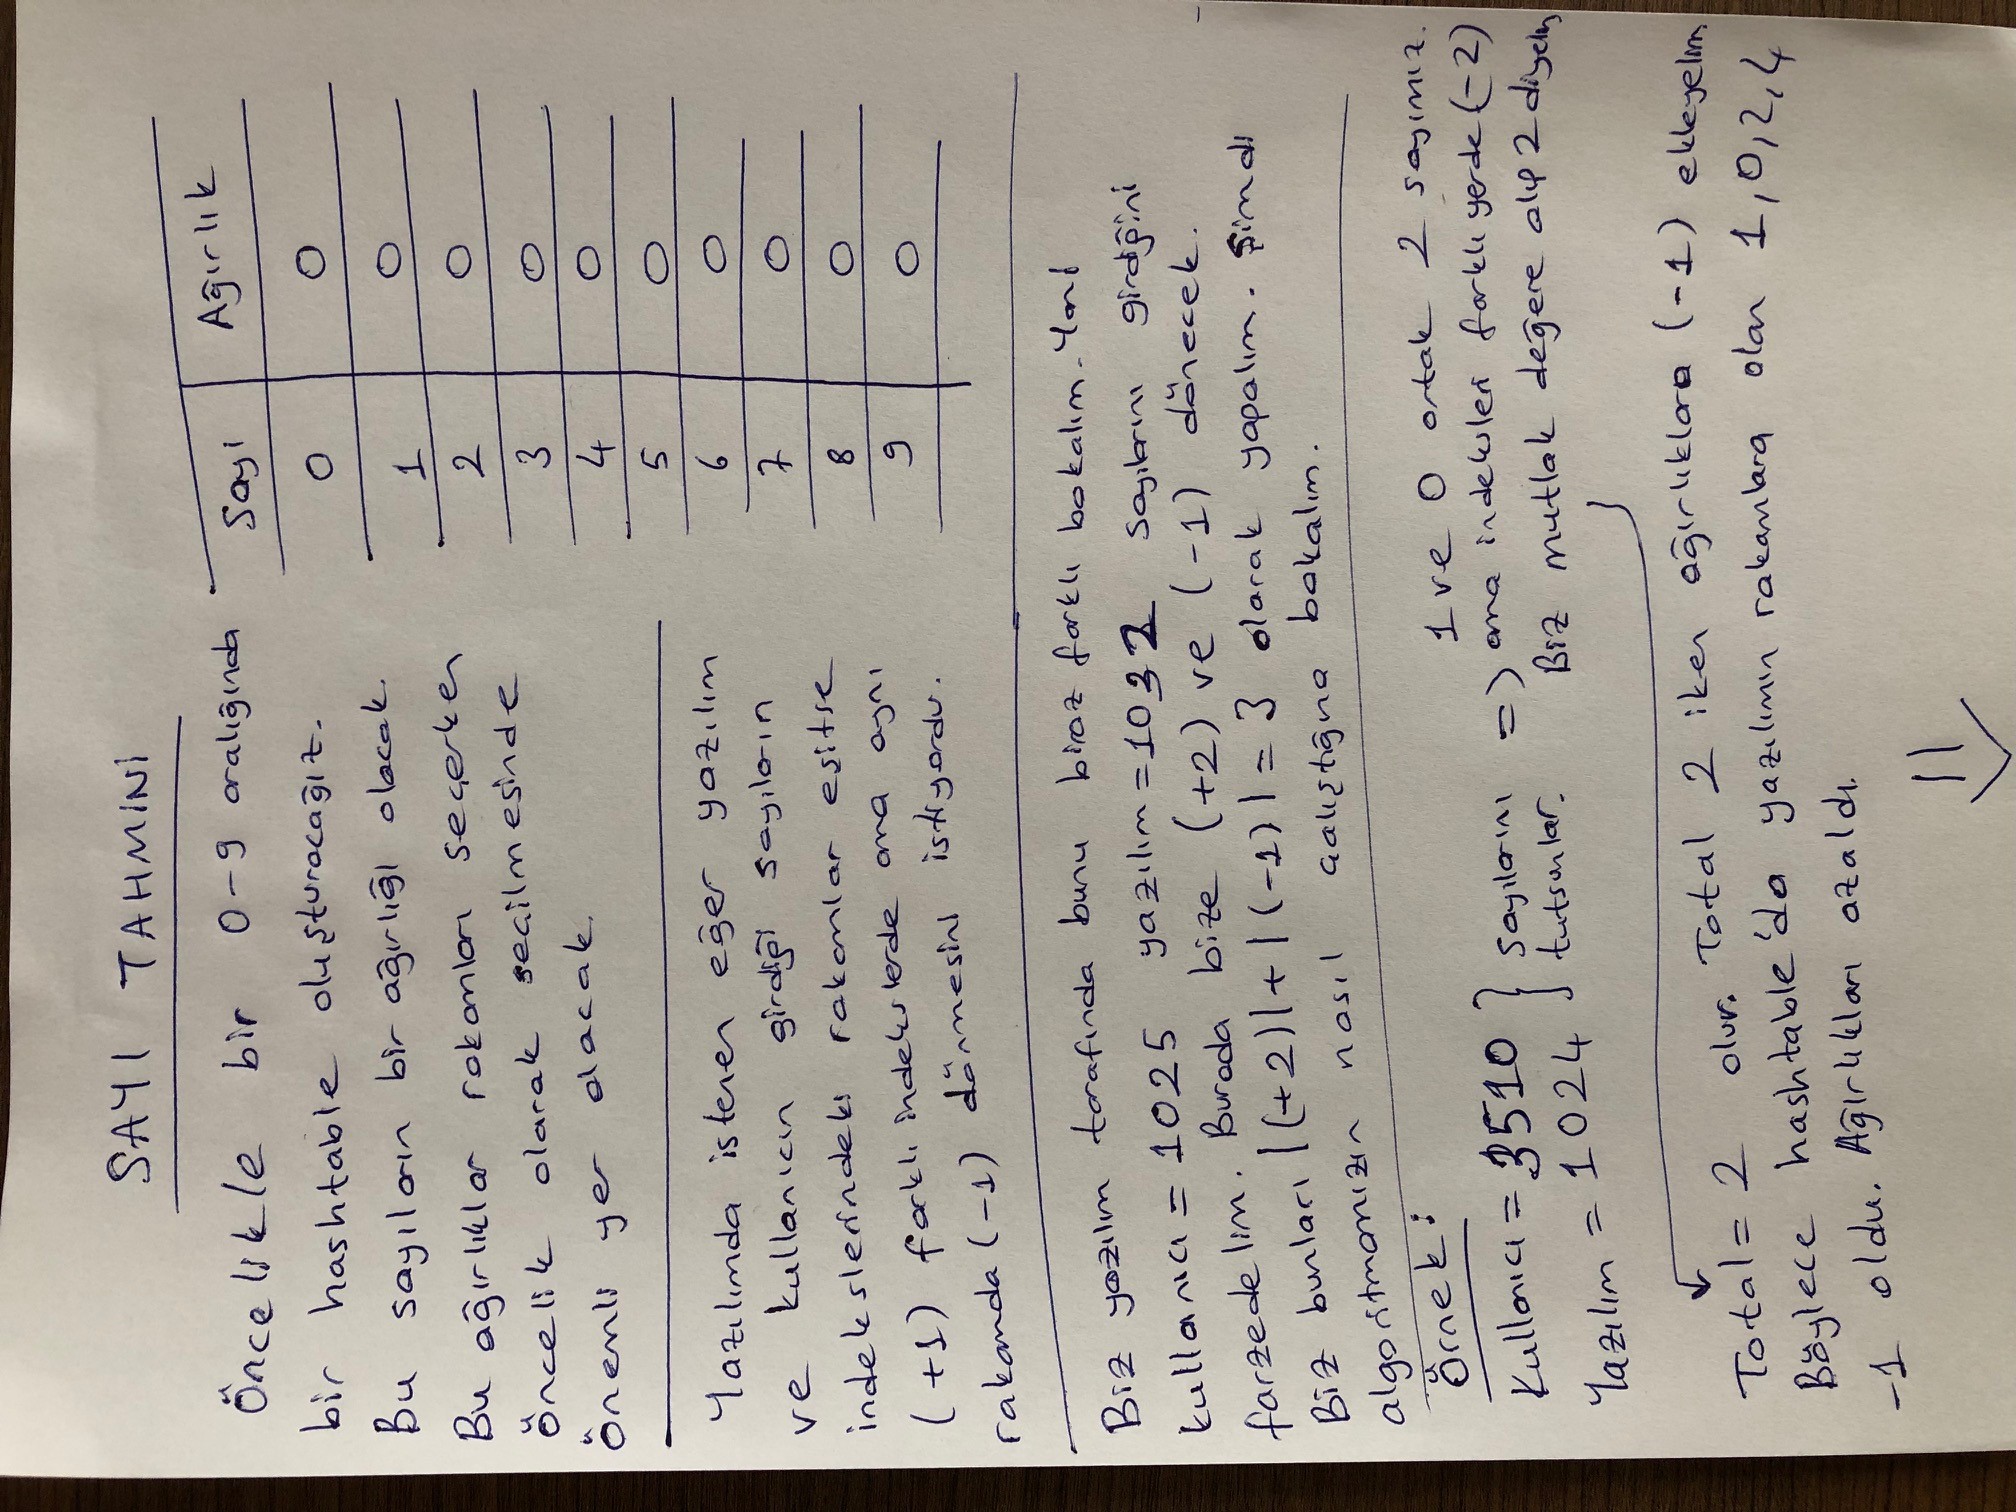 SAYI TAHMİNİ
Öncelikle bir 0-9 aralığında
bir hashtable oluşturacağız.
Bu sayıların bir ağırlığı olacak.
Bu ağırlıklar rakamları seçerken
öncelik olarak seçilmesinde
önemli yer alacak.
Sayı Ağırlık
0 0
1 0
2 0
3 0
4 0
5 0
6 0
7 0
8 0
9 0
Yazılımda istenen eğer yazılım
ve kullanıcın girdiği sayıların
indekslerindeki rakamlar eşitse
(+1) farklı indekslerde ama aynı
rakamda (-1) dönmesini istiyordu.
Biz yazılım tarafında bunu biraz farklı bakalım. Yani
kullanıcı = 1025 yazılım = 1032 sayılarını girdiğini
farzedelim. Burada bize (+2) ve (-1) dönecek.
Biz bunları |(+2)|+|(-1)| = 3 olarak yapalım. Şimdi
algoritmamızın nasıl çalıştığına bakalım.
Örnek:
Kullanıcı = 3510 } sayılarını
Yazılım = 1024 tutsunlar.
=> 1 ve 0 ortak 2 sayımız.
ama indeksleri farklı yerde (-2)
Biz mutlak değere alıp 2 diyelim
Total = 2 olur. Total 2 iken ağırlıklara (-1) ekleyelim.
Böylece hashtable'da yazılımın rakamlara olan 1,0,2,4
-1 oldu. Ağırlıkları azaldı.